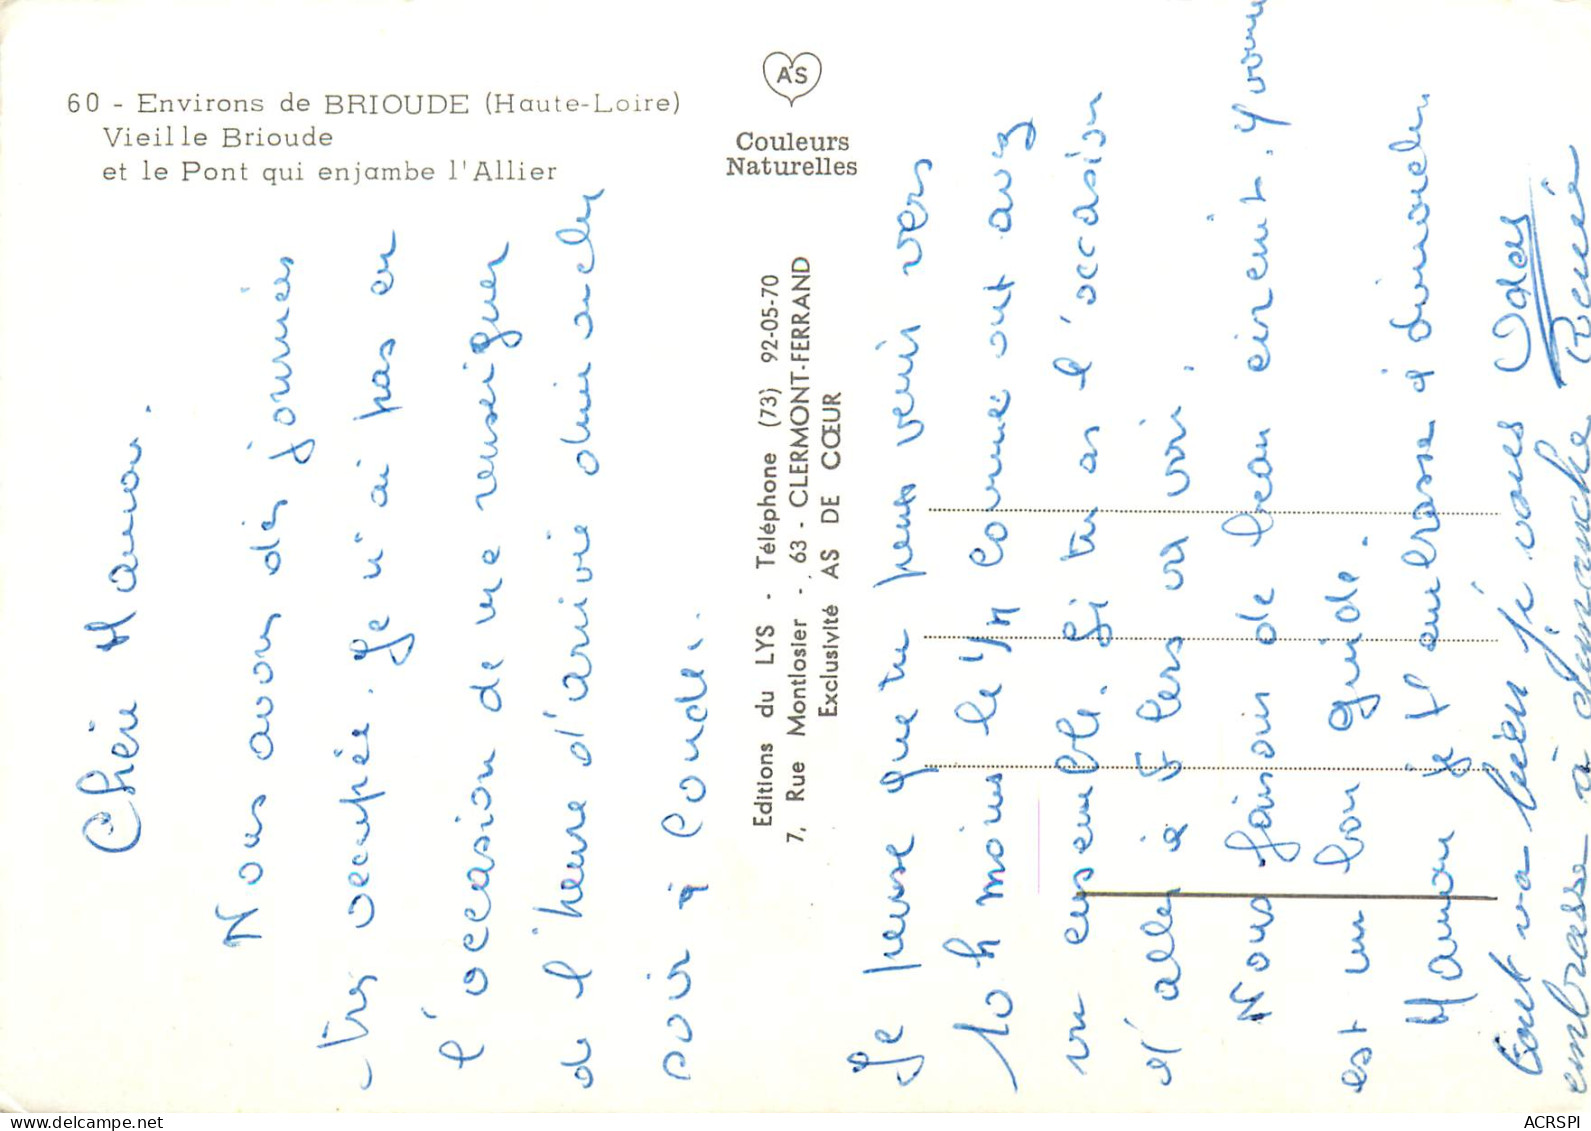 60 - Environs de BRIOUDE (Haute-Loire)
Vieille Brioude
et le Pont qui enjambe l'Allier
AS
Couleurs
Naturelles
Editions du LYS - Téléphone (73) 92-05-70
7, Rue Montlosier - 63 - CLERMONT-FERRAND
Exclusivité AS DE CŒUR
Chère Maman.
Nous avons des journées
très occupée. Je n'ai pas eu
l'occasion de me renseigner
de l'heure d'arrivée dimanche
soir à
Je pense que tu peux venir vers
10 h moins le 1/4 comme ont avez
vu ensemble. Si tu as l'occasion
d'aller à vers va voir.
Nous faisons de beau circuit. Yvonne
est un bon guide.
Maman je t'embrasse à dimanche
Odas
Tout va bien je vous
embrasse à dimanche Renée
delcampe.net
ACRSPI